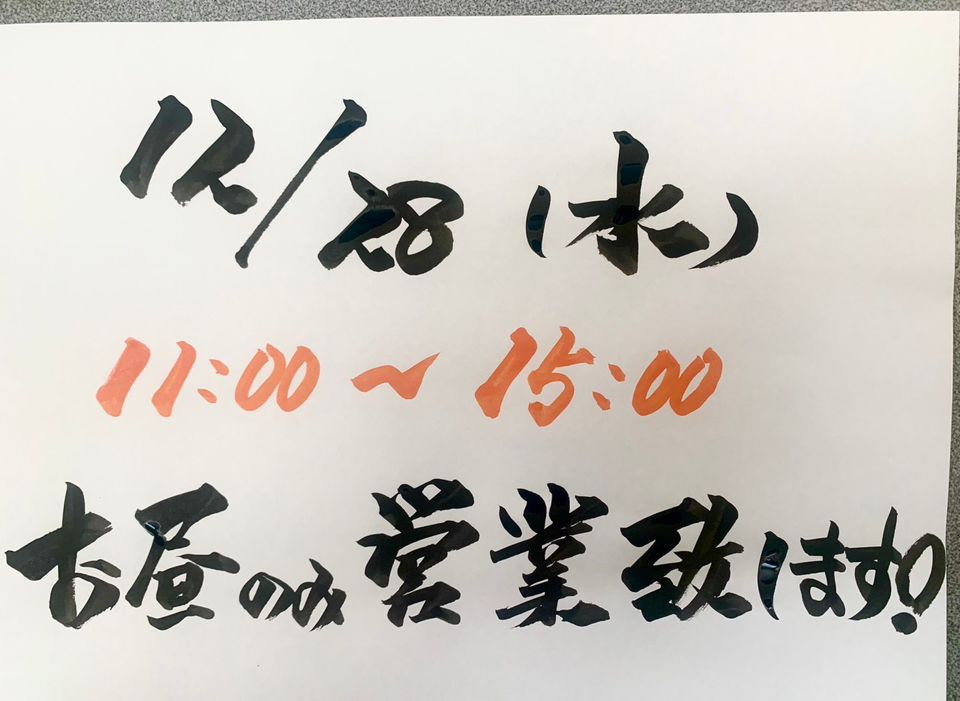 12/28（水）
11:00～15:00
お昼のみ営業致します!